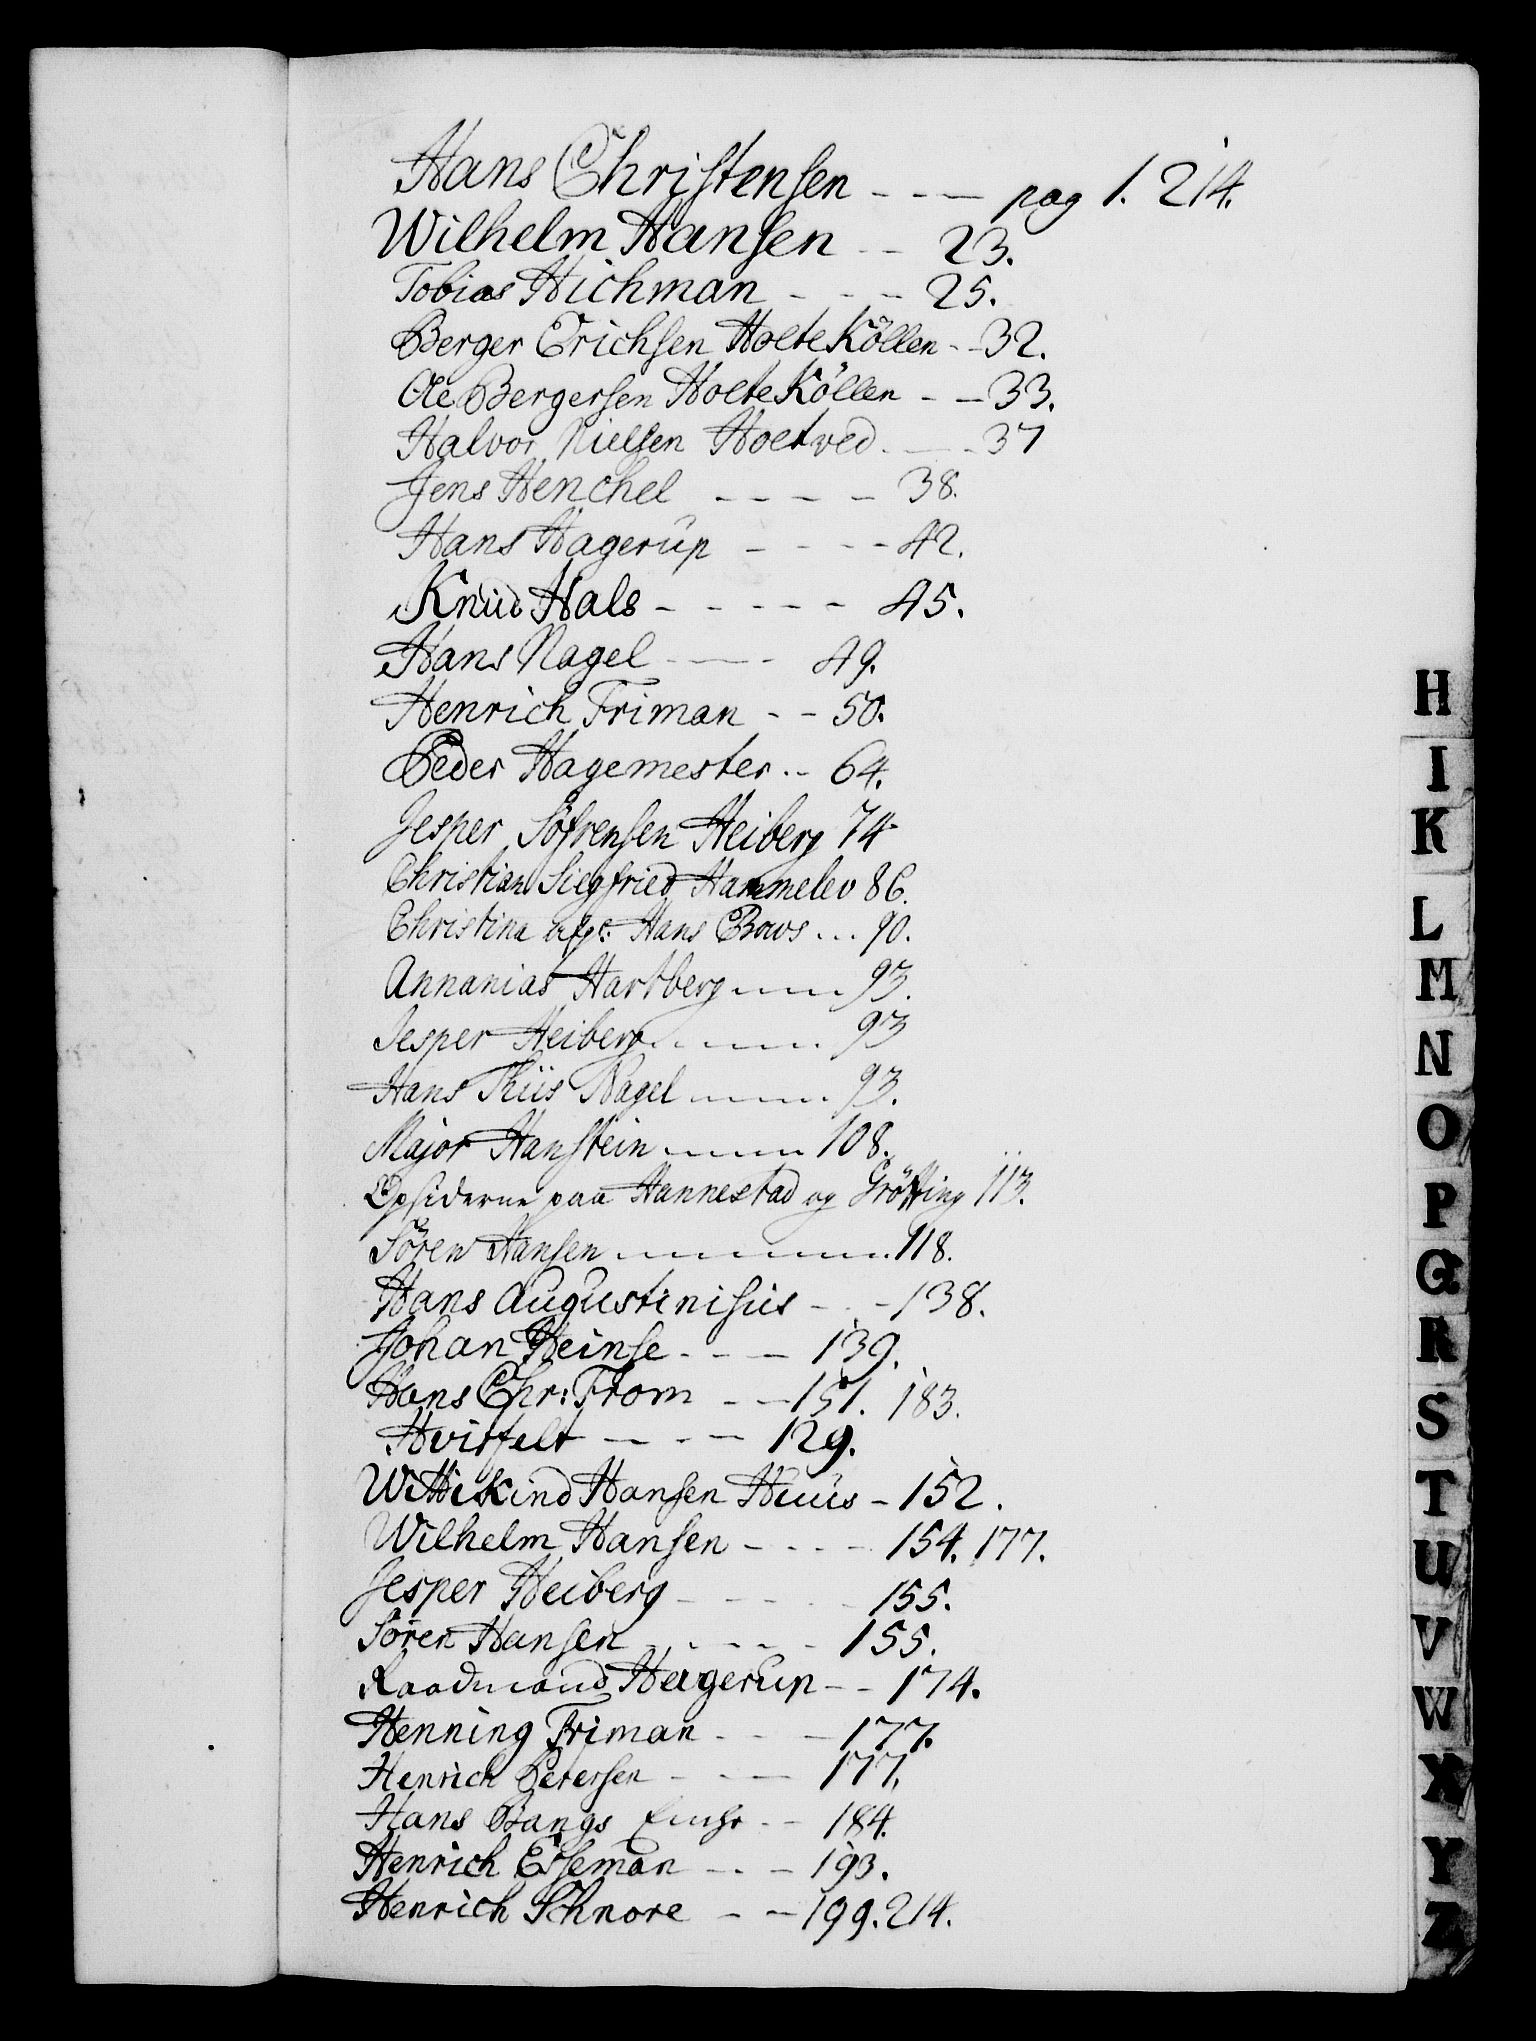 Hans Christensen - - - pag 1. 214.
Wilhelm Hansen - - 23.
Tobias Hichman - - - 25.
Berger Erichsen HolteKöllen - - 32.
Ole Bergersen HolteKöllen - - 33.
Halvor Nielsen Holtved - - - 37
Jens Henchel - - - - 38.
Hans Hagerup - - - - 42.
Knud Hals - - - - - 45.
Hans Nagel - - - 49.
Henrich Friman - - 50.
Peder Hagemester - - 64.
Jesper Söfrensen Heiberg 74
Christian Siegfried Hammelev 86.
Christina Hans Bows ... 90.
Annanias Hartberg - - - 93.
Jesper Heiberg - - - 93
Hans Thiis Nagel - - - 93.
Major Hanstein - - - 108.
Opsiderne paa Hannestad og Grötting 113.
Sören Hansen - - - - 118.
Hans Augustinisus - - - 138.
Johan Heinse - - - 139.
Hans Chr: From - - 151. 183.
Hvitfelt - - - 129.
Wittikind Hansen Huus - 152.
Wilhelm Hansen - - - - 154. 177.
Jesper Heiberg - - - - 155.
Sören Hansen - - - - 155.
Raadmand Hagerup - - 174.
Henning Friman - - - 177.
Henrich Petersen - - - 177.
Hans Bangs - - 184.
Henrich Esseman - - - 193.
Henrich Schnore - - 199. 214.
H
I
K
L
M
N
O
P
Q
R
S
T
U
V
W
X
Y
Z